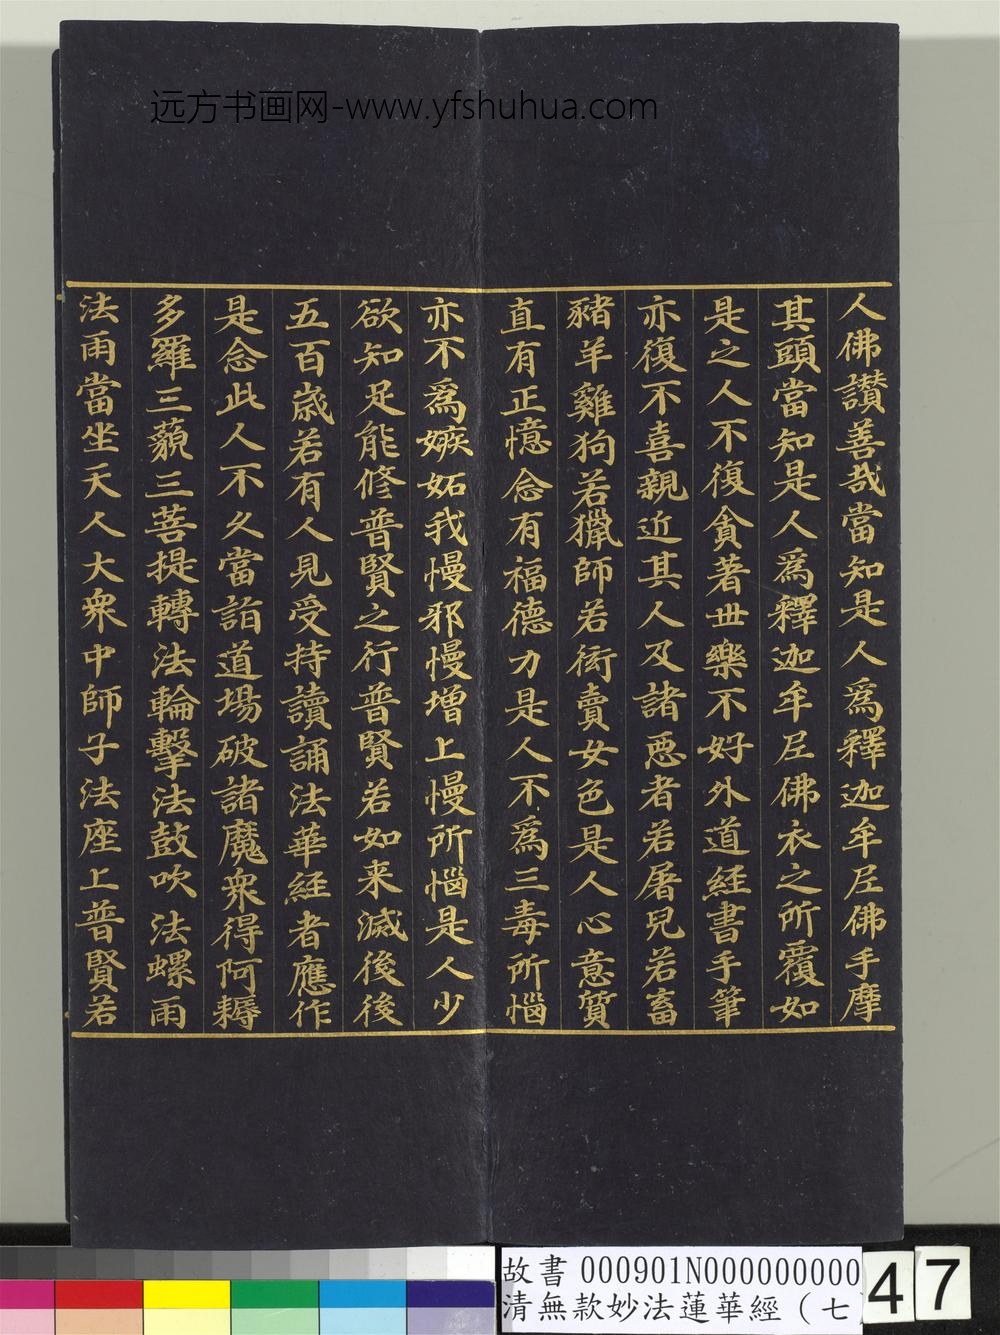 远方书画网-www.yfshuhua.com
人佛讃善哉當知是人爲釋迦牟尼佛手摩
其頭當知是人爲釋迦牟尼佛衣之所覆如
是之人不復貪著世樂不好外道經書手筆
亦復不喜親近其人及諸惡者若屠兒若畜
豬羊雞狗若獵師若衒賣女色是人心意質
直有正憶念有福德力是人不爲三毒所惱
亦不爲嫉妬我慢邪慢增上慢所惱是人少
欲知足能修普賢之行普賢若如来滅後後
五百歲若有人見受持讀誦法華經者應作
是念此人不久當詣道場破諸魔衆得阿耨
多羅三藐三菩提轉法輪擊法鼓吹法螺雨
法雨當坐天人大衆中師子法座上普賢若
故書 000901N000000000
清無款妙法蓮華經（七
47